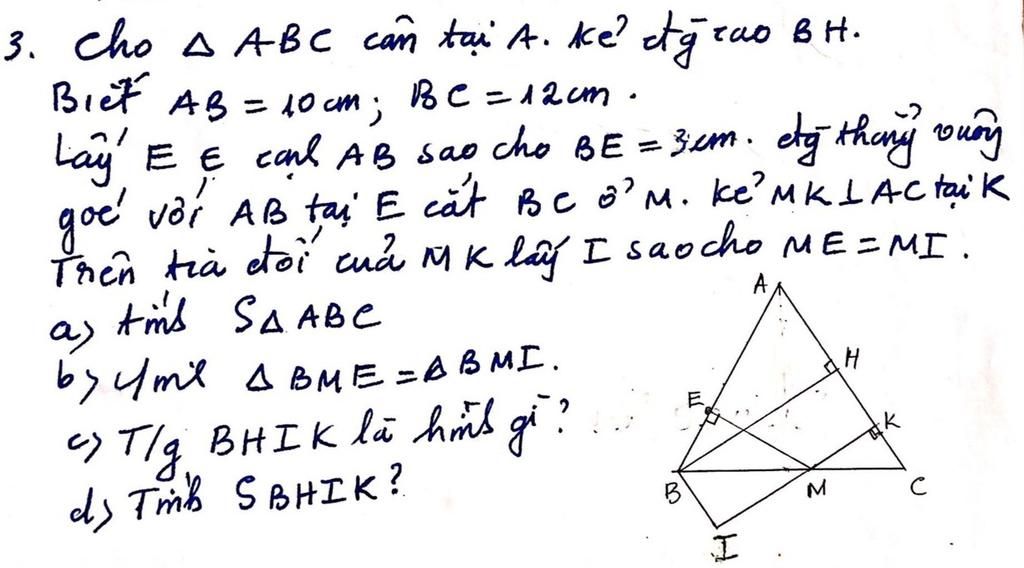 3. Cho Δ ABC cân tại A. Kẻ đg̃ cao BH.
Biết AB = 10cm; BC = 12cm.
Lấy E ∈ cạnh AB sao cho BE = 3cm. đg̃ thẳng vuông
góc với AB tại E cắt BC ở M. Kẻ MK ⊥ AC tại K
Trên tia đối của MK lấy I sao cho ME = MI.
a) tính SΔABC
b) c/m Δ BME = Δ BMI.
c) T/g BHIK là hình gì?
d) Tính SBHIK?
A
H
E
K
B
M
C
I